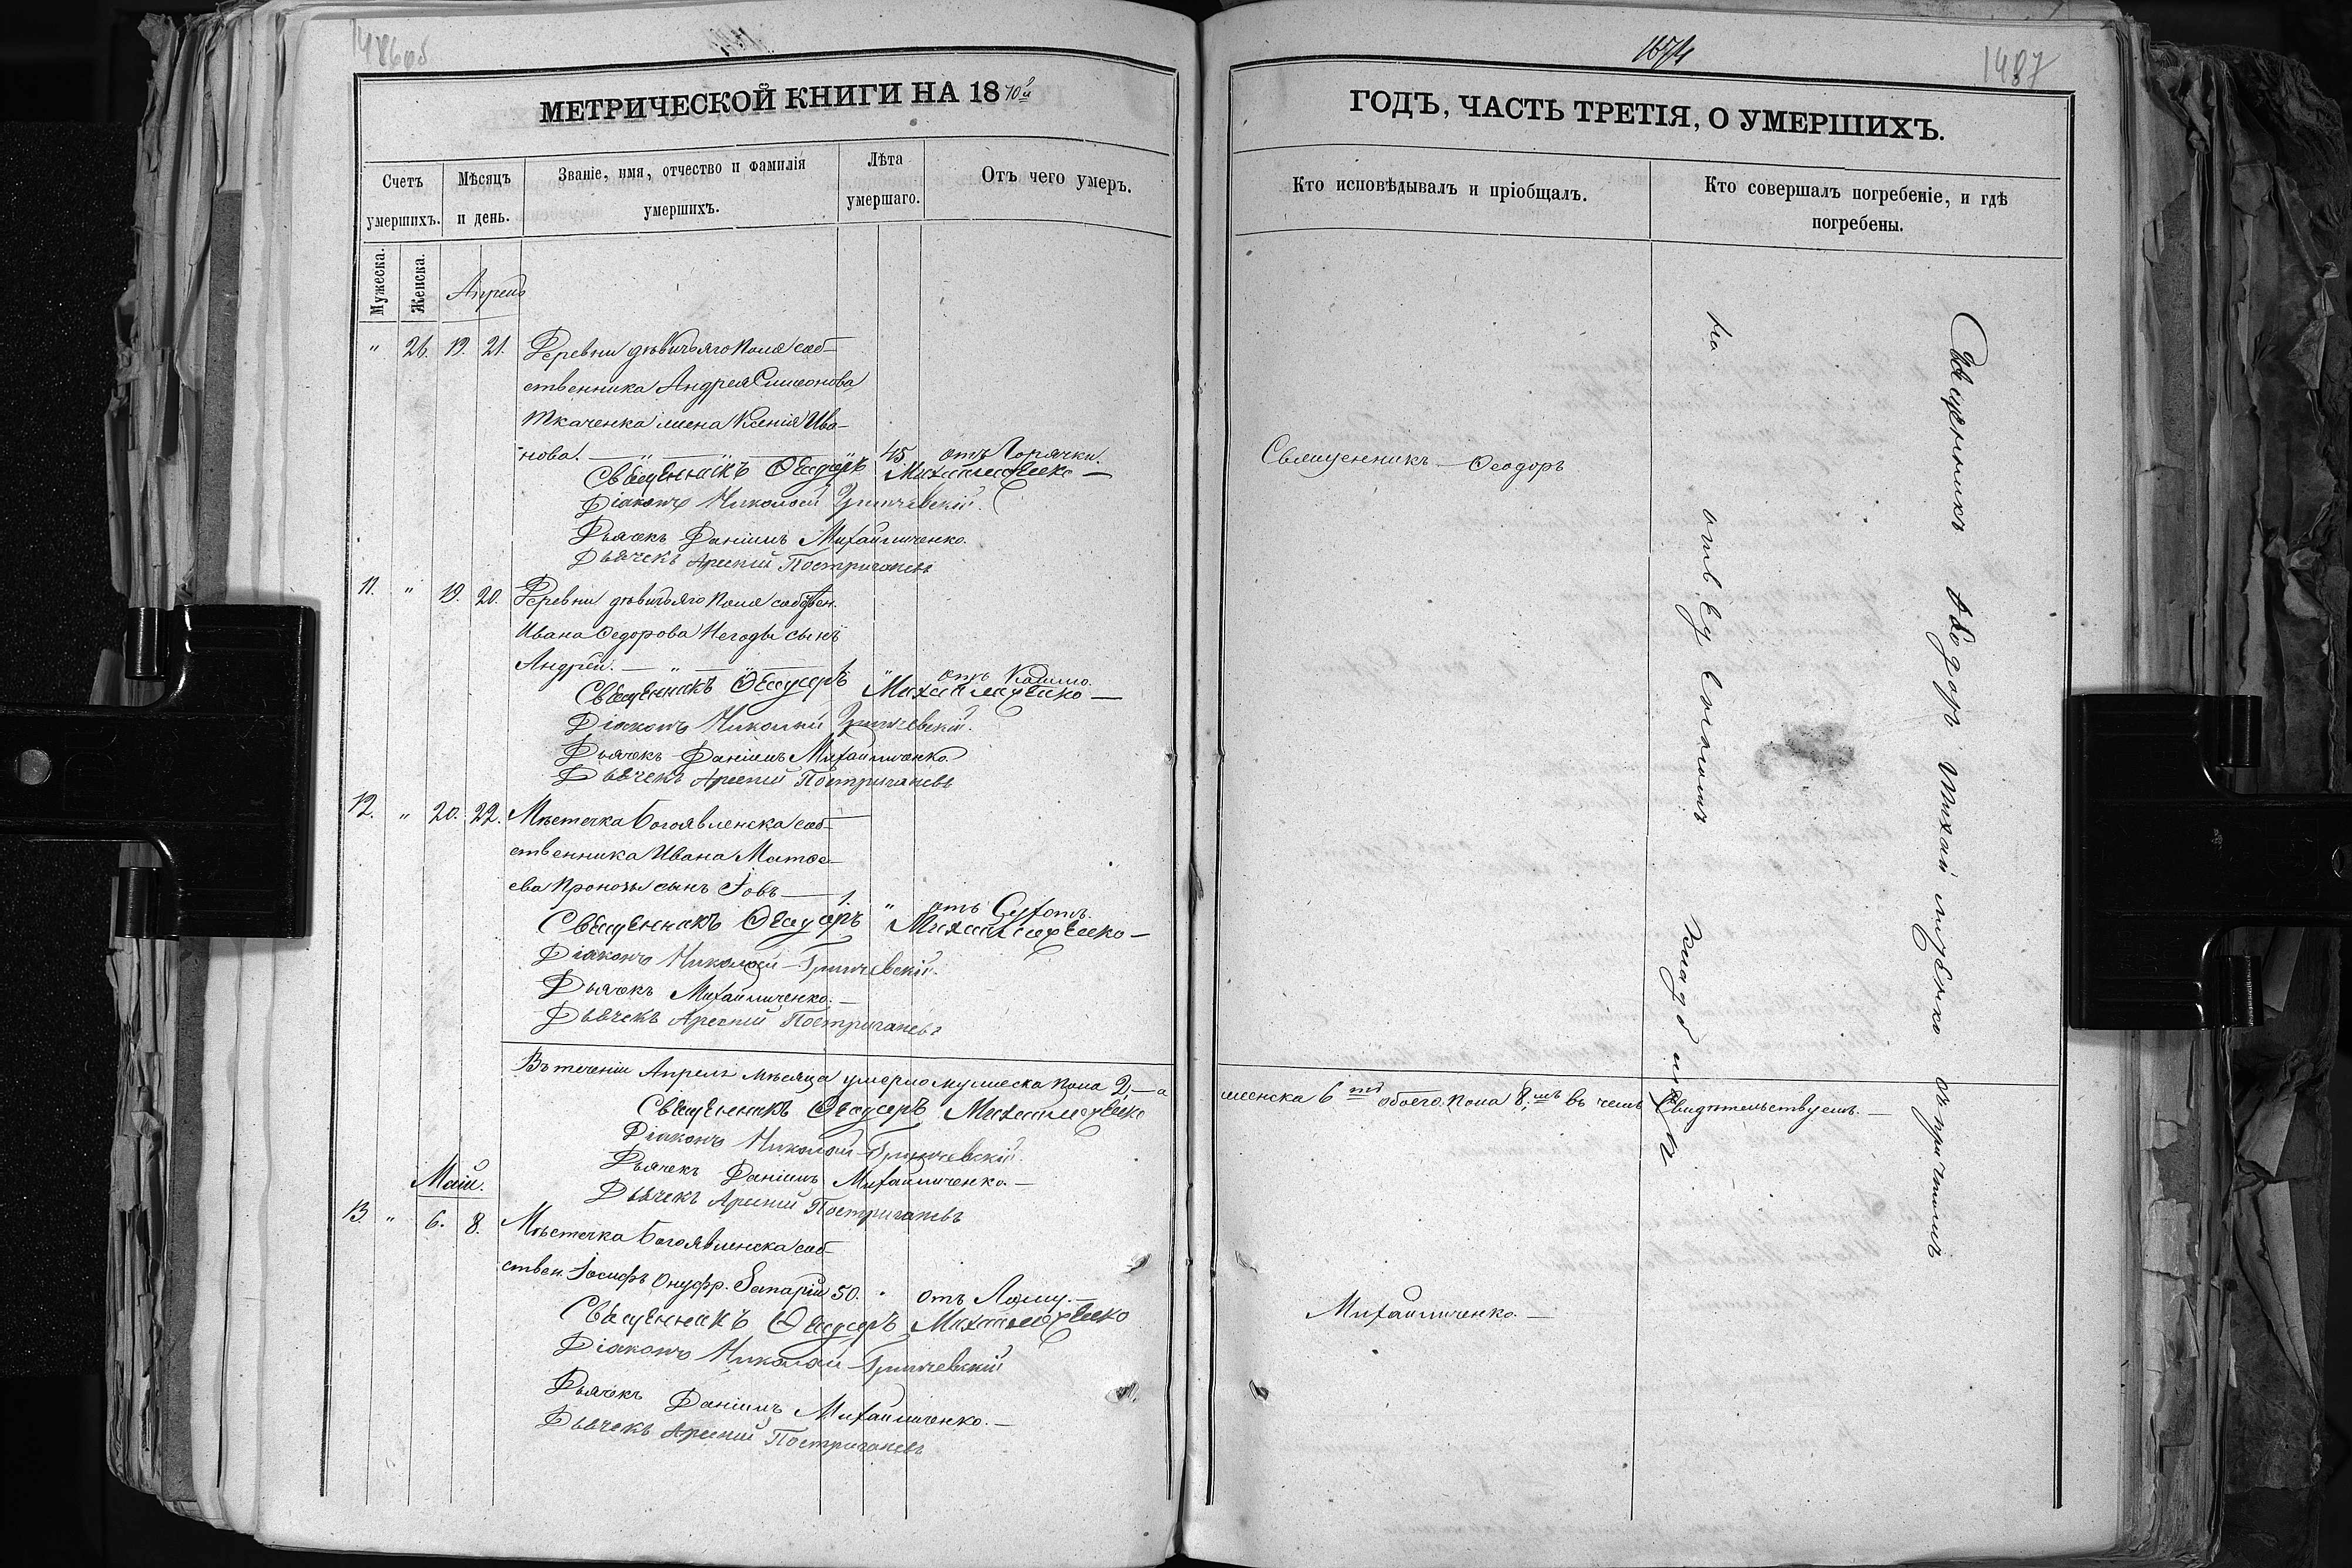 1487
МЕТРИЧЕСКОЙ КНИГИ НА 1870й
ГОДЪ, ЧАСТЬ ТРЕТІЯ, О УМЕРШИХЪ.
Счетъ умершихъ.
Мѣсяцъ и день.
Званіе, имя, отчество и фамилія умершихъ.
Лѣта умершаго.
Отъ чего умеръ.
Кто исповѣдывалъ и пріобщалъ.
Кто совершалъ погребеніе, и гдѣ погребены.
Мужеска.
Женска.
Апрель
" 26. 19. 21. Деревни дѣвичьяго Поля соб-
ственника Андрея Симеонова
Ткаченка жена Ксенія Ива-
нова. — " — 45. отъ Горячки.
Священникъ Феодоръ Михайличенко —
Діаконъ Николай Гринчевскій.
Дьячекъ Даніилъ Михайличенко.
Дьячекъ Арсеній
Священникъ Феодоръ
11. " 19. 20. Деревни дѣвичьяго Поля собствен.
Ивана Федорова Негоды сынъ
Андрей. — " — " отъ
Священникъ Феодоръ Михайличенко —
Діаконъ Николай Гринчевскій.
Дьячекъ Даніилъ Михайличенко
Дьячекъ Арсеній
12. " 20. 22. Мѣстечка Богоявленска соб-
ственника Ивана Матѳе-
ева сынъ Іовъ — 1. " отъ Сухот.
Священникъ Феодоръ Михайличенко —
Діаконъ Николай Гринчевскій.
Дьячекъ Михайличенко. —
Дьячекъ Арсеній
Въ теченіи Апреля мѣсяца умерло мужеска пола 2, — а
женска 6 обоего пола 8. въ чемъ Свидѣтельствуемъ. —
Священникъ Феодоръ Михайличенко
Діаконъ Николай Гринчевскій.
Дьячекъ Даніилъ Михайличенко. —
Дьячекъ Арсеній
Маій.
13. " 6. 8. Мѣстечка Богоявленска соб-
ствен. Іосифъ Онуфр. 50. " отъ
Священникъ Феодоръ Михайличенко
Діаконъ Николай Гринчевскій
Дьячекъ Даніилъ Михайличенко. —
Дьячекъ Арсеній
Михайличенко —
Священникъ Феодоръ Михайличенко съ причтомъ
на отведенномъ кладбищѣ